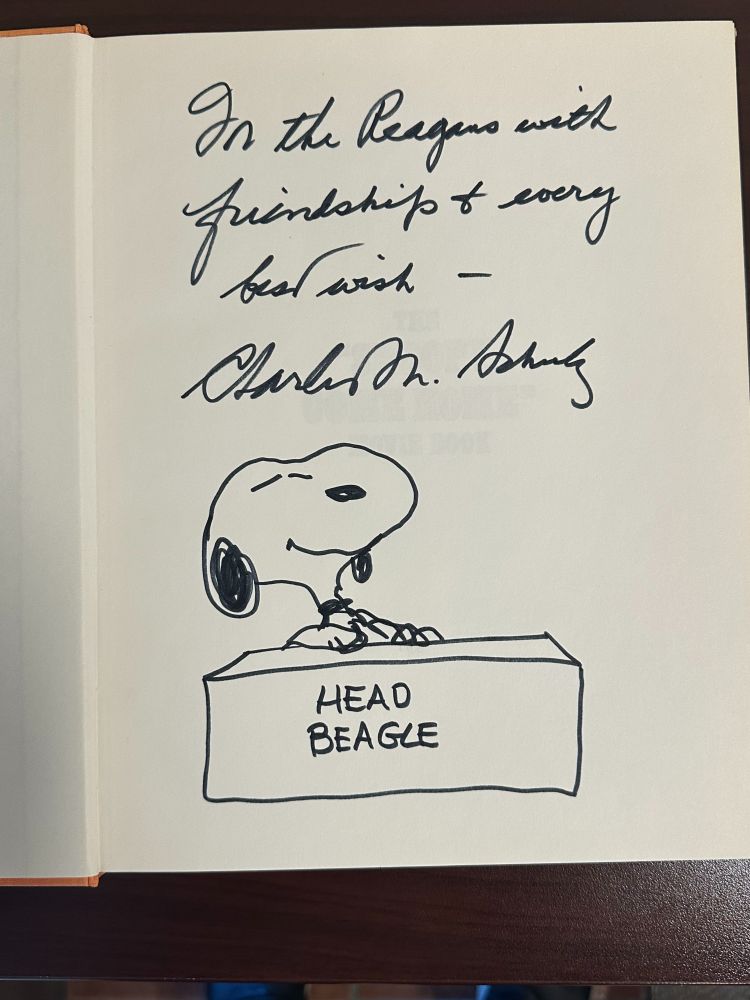 For the Reagans with
friendship & every
best wish —
Charles M. Schulz
THE
COME HOME"
MOVIE BOOK
HEAD
BEAGLE